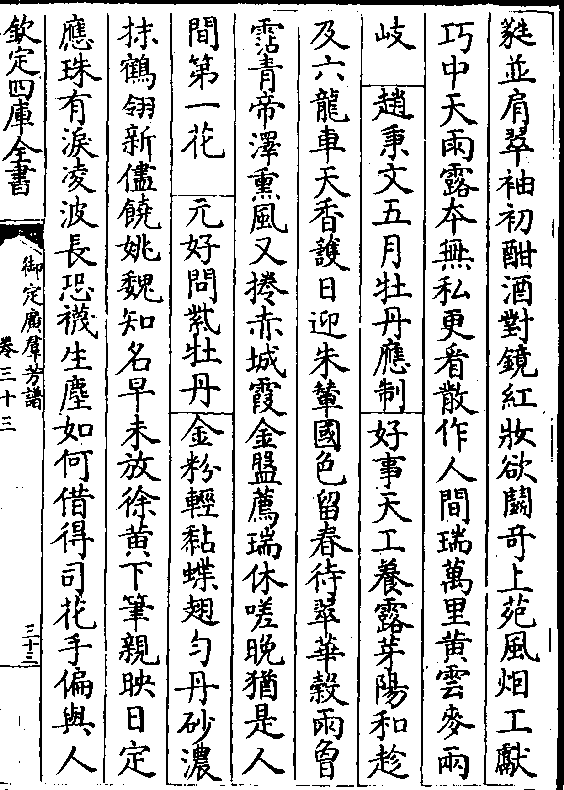 蕤並肩翠袖初酣酒對鏡紅妝欲鬬奇上苑風烟工獻
巧中天雨露本無私更看散作人間瑞萬里黄雲麥兩
岐 趙秉文五月牡丹應制 好事天工養露芽陽和趁
及六龍車天香䕶日迎朱輦國色留春待翠華榖雨曾
霑青帝澤熏風又捲赤城霞金盤薦瑞休嗟晚猶是人
間第一花 元好問紫牡丹 金粉輕黏蝶翅匀丹砂濃
抹鶴翎新儘饒姚魏知名早未放徐黄下筆親映日定
應珠有淚凌波長恐襪生塵如何借得司花手偏與人
欽定四庫全書
御定廣羣芳譜
卷三十三
三十三